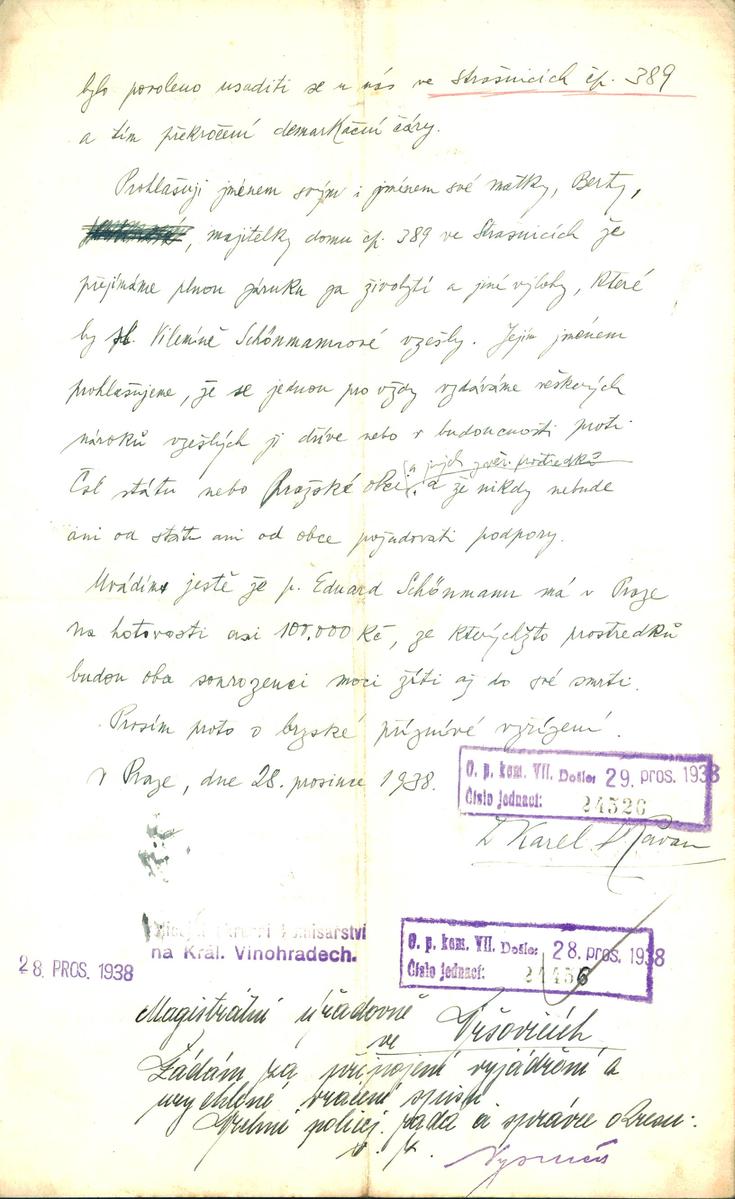 bylo povoleno usaditi se u nás ve Strašnicích čp. 389
a tím překročení demarkační čáry.
Prohlašuji jménem svým i jménem své matky, Berty,
, majitelky domu čp. 389 ve Strašnicích že
přejímáme plnou záruku za živobytí a jiné výlohy, které
by Vilemíně Schönmannové vzešly. Jejím jménem
prohlašujeme, že se jednou pro vždy vzdáváme veškerých
nároků vzešlých jí dříve nebo v budoucnosti proti
a jejich prostředků
Čsl státu nebo Pražské obci, a že nikdy nebude
ani od státu ani od obce požadovati podpory.
Uvádíme ještě že p. Eduard Schönmann má v Praze
na hotovosti asi 100.000 Kč, ze kterýchžto prostředků
budou oba sourozenci moci žíti až do své smrti.
Prosím proto o brzské příznivé vyřízení.
V Praze, dne 28. prosince 1938.
O. p. kom. VII. Došlo: 29. pros. 1938
Číslo jednací: 24526
Karel
komisařství
na Král. Vinohradech.
28. PROS. 1938
O. p. kom. VII. Došlo: 28. pros. 1938
Číslo jednací: 24456
Magistrátní úřadovně
ve Vršovicích
Žádám za připojení vyjádření a
urychlené vrácení spisu.
Vrchní policej. rada a správce okresu: